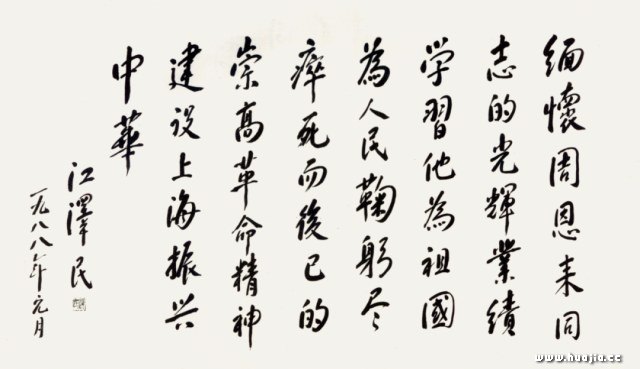 缅懷周恩来同
志的光輝業績
学習他為祖國
為人民鞠躬尽
瘁死而後已的
崇高革命精神
建设上海振兴
中華
江澤民
一九八八年元月
www.huajia.cc